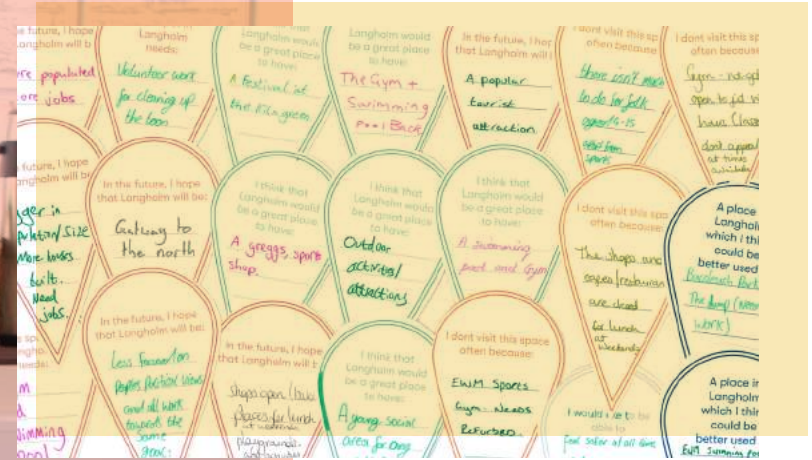 e future, I hope
angholm will b
re populated
ore jobs
Langholm
needs:
Volunteer work
for cleaning up
the toon
Langholm would
be a great place
to have:
A Festival at
the Kilngreen.
Langholm would
be a great place
to have:
The Gym +
Swimming
Pool Back
In the future, I hop
that Langholm will
A popular
tourist
attraction.
I dont visit this sp
often because
there isn't much
to do for folk
aged 6-15
apart from
sports
I dont visit this sp
often becaus
Gym - not
open to
dont appeal
at times
future, I hope
angholm will be
ger in
More houses
built.
Need
jobs.
In the future, I hope
that Langholm will be:
Gateway to
the north
I think that
Langholm would
be a great place
to have:
A greggs, sports
shop.
I think that
Langholm would
be a great place
to have:
Outdoor
activities/
attractions
I think that
Langholm would
be a great place
to have:
A swimming
pool and Gym
I dont visit this spa
often because
The shops and
cafes/restauran
are closed
for lunch
at weekends
A place
Langhol
which I thi
could be
better used
Buccleuch Park
The
work)
In the future, I hope
that Langholm will be:
Less focused on
Peoples Political Views
and all work
towards the
same
goal:
In the future, I hope
that Langholm will b
Shops open
places for lunch
at weekends
playgrounds.
I think that
Langholm would
be a great place
to have:
A young social
area for
I dont visit this space
often because:
EWM Sports
Gym - Needs
Refurbed.
I would like to be
able to
feel safer at all
A place in
Langholm
which I thin
could be
better used
EWM Swimming
needs:
imming